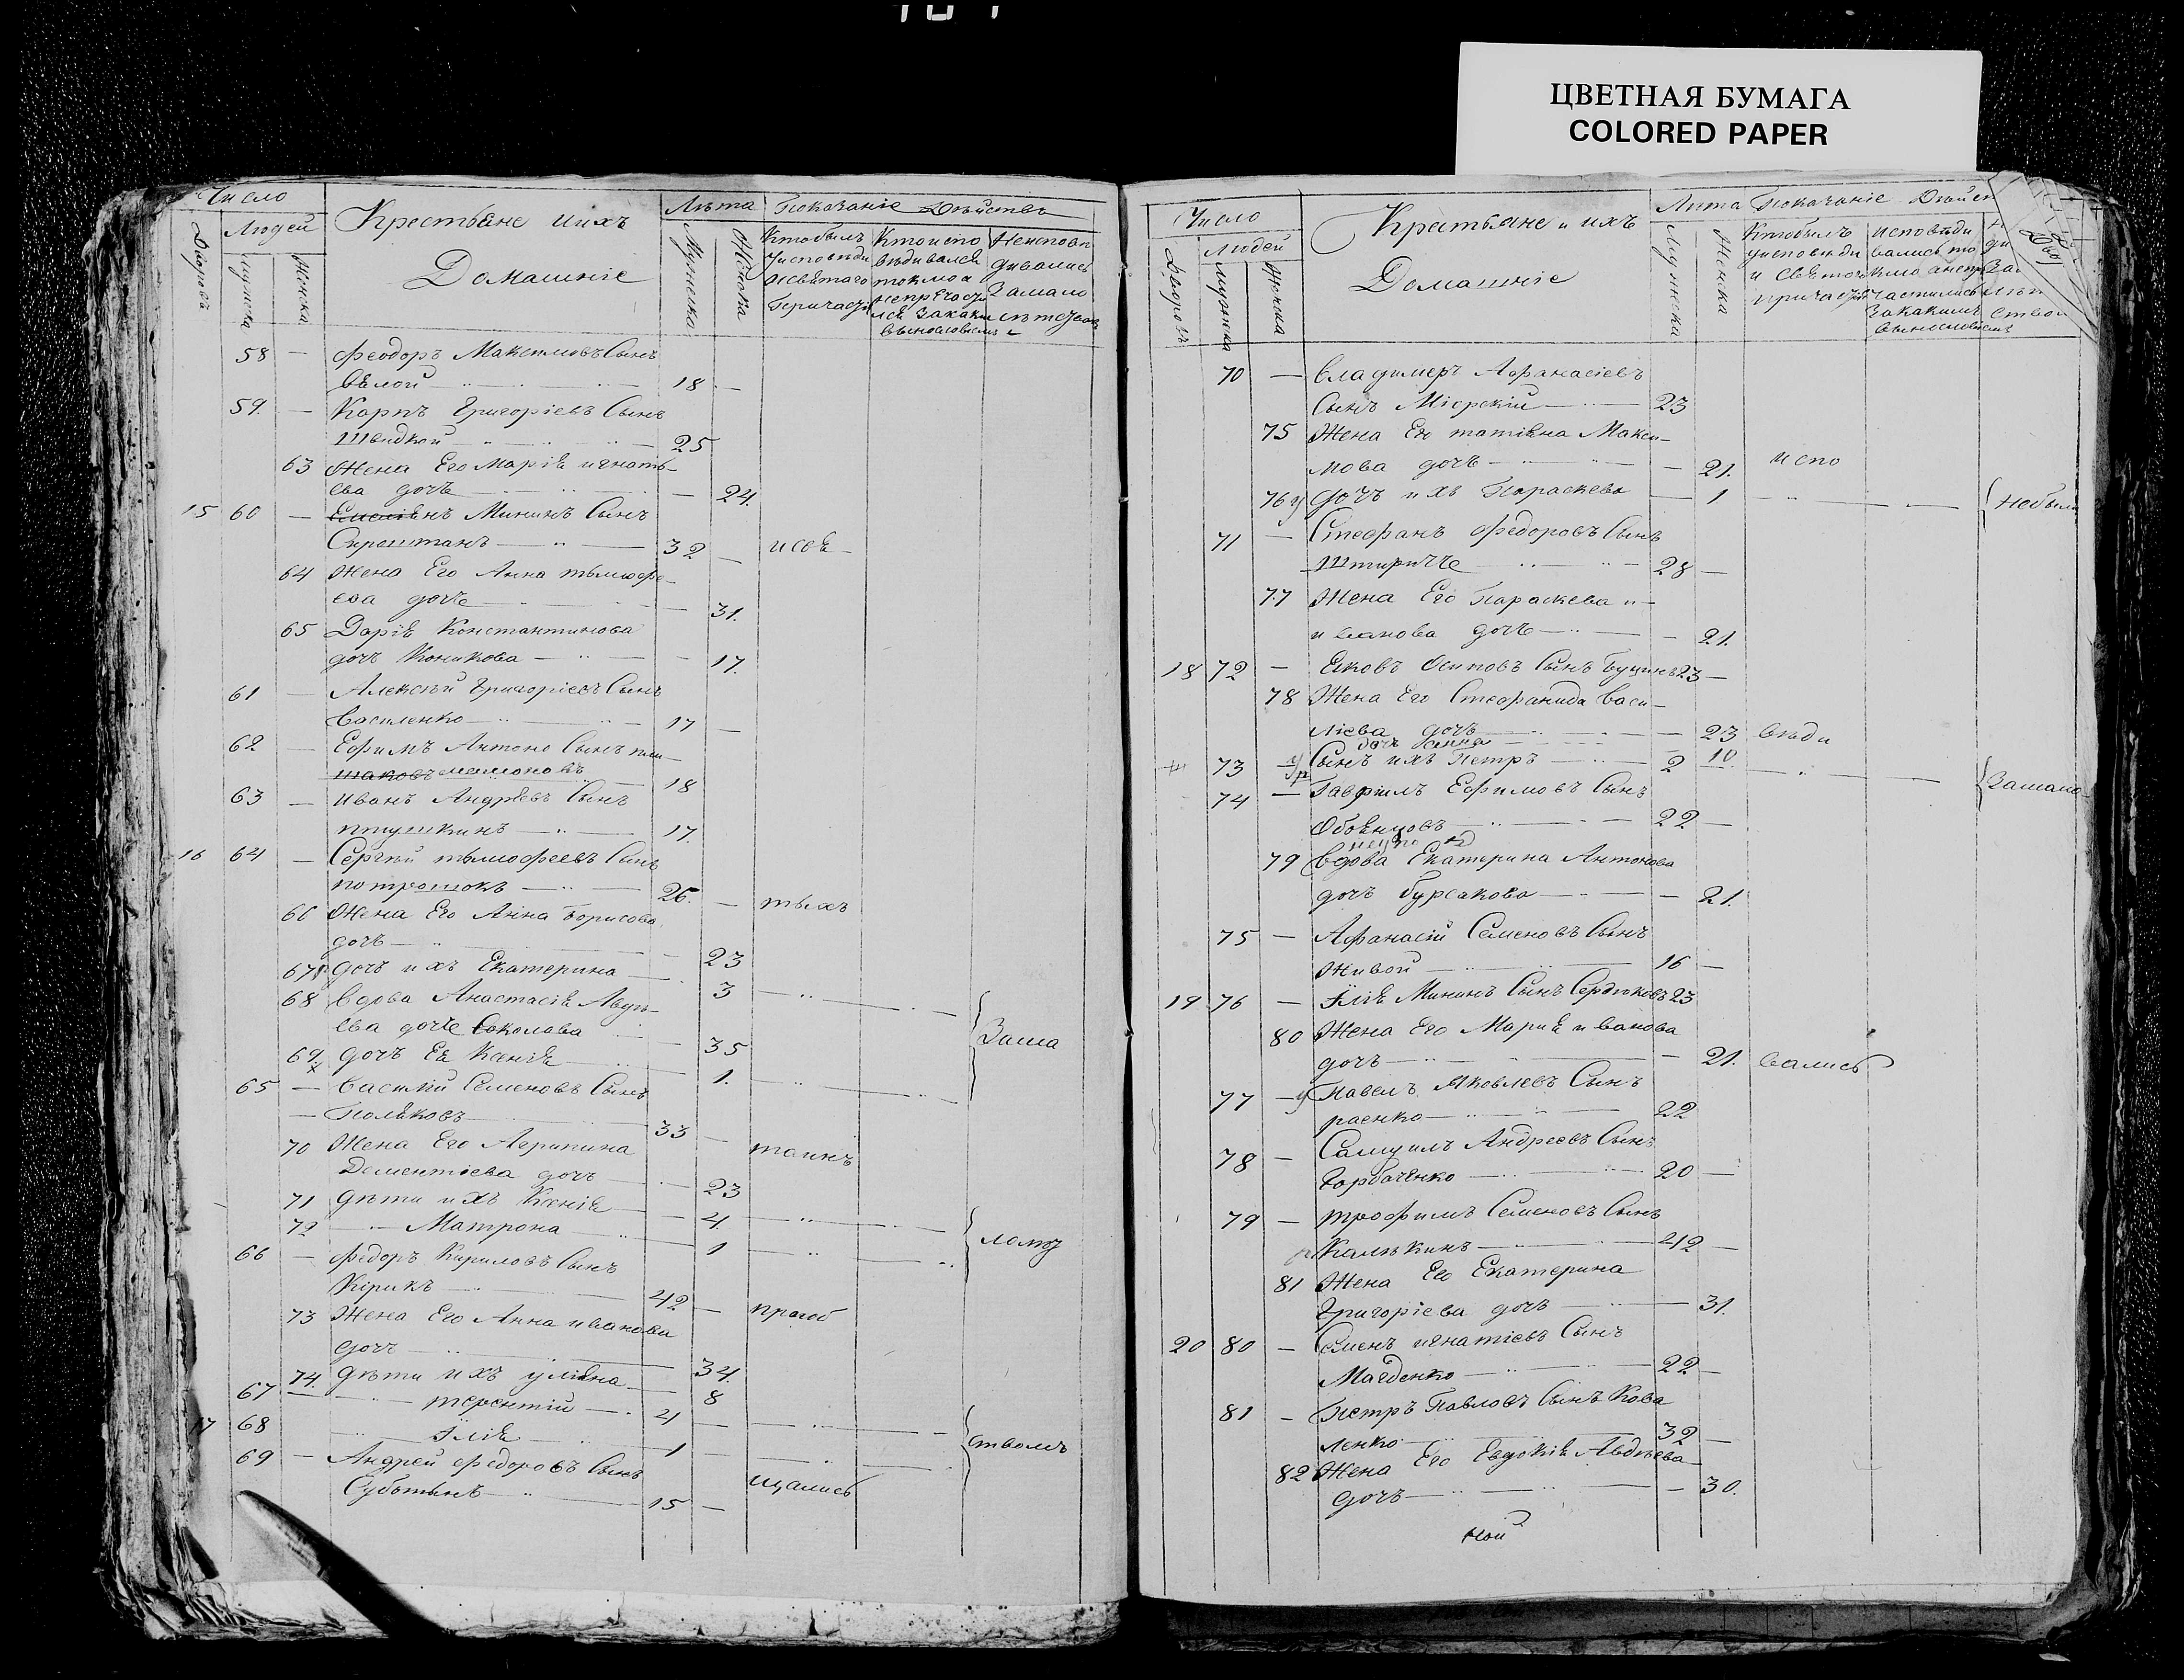 ЦВЕТНАЯ БУМАГА
COLORED PAPER
Число
Людей
Дворовъ
Мужска
Женска
Крестьяне и ихъ
Домашніе
Лѣта
Мужска
Женска
Показаніе Дѣйствъ
Кто былъ
у исповѣди
и святаго
Причастія
Кто испо
вѣдивался
токмо а
не причасти
лся за каким
винословіемъ
Неисповѣ
дивались
58 — Феодоръ Максимовъ Сынъ
Бѣлой 18 —
59. — Карпъ Григоріевъ Сынъ
Швидкой 25
63 Жена Его Марія игнать-
ева дочь — 24.
15 60 — Минин Сынъ
Скрыштанъ 32 —
64 Жена Его Анна тымофе-
ева дочь — 31.
65 Дарія Константинова
дочь Коникова — 17.
61 — Алексѣй Григоріевъ Сынъ
Василенко 17 —
62 — Ефимъ Антоно Сынъ
18
63 — иванъ Андрѣевъ Сынъ
птушкинъ 17.
16 64 — Сергѣй тымофеевъ Сынъ
26. — тыхъ
66 Жена Его Анна Борисова
дочь — 23
67 дочь ихъ Екатерина — 3
68 вдова Анастасія
ева дочь Соколова 35 Зама
69 дочь Ея Ксенія 1.
65 — Василій Семеновъ Сынъ
— Поляковъ 33 —
70 Жена Его Агрипина таинъ
Дементіева дочь — 23
71 дѣти ихъ Ксенія — 4
72 — Матрона — 1
66 — Федоръ Кириловъ Сынъ
Кірикъ 42 —
73 Жена Его Анна иванова
дочь 34
74. дѣти ихъ уліяна 8
67 — терентій 4 —
17 68 Ілія 1 — ствомъ
69 — Андрей Федоровъ Сынъ
Суботынъ 15 — щались
Число
Людей
Дворовъ
Мужска
Женска
Крестьяне и ихъ
Домашніе
Лѣта
Мужска
Женска
Показаніе Дѣйств
Кто былъ
у исповѣди
и святого
причастія
исповѣди
вались то
кмо а не при
частились
за какимъ
винословіемъ
70 — Владимеръ Афанасіевъ
Сынъ Мірскій 23
75 Жена Его татіяна Макси-
мова дочь — 21. испо
76 у дочь ихъ Параскева — 1 Небыли
71 — Стефанъ Федоровъ Сынъ
28 —
77 Жена Его Параскева и-
иванова дочь — 21.
18 72 — Яковъ Осиповъ Сынъ Буцинъ 23 —
78 Жена Его Стефанида Васи-
ліева дочь — 23 вѣди
дочь 10
73 Сынъ ихъ Петръ 2 Замало
74 — Гаврилъ Ефимовъ Сынъ
Обоянцовъ 22 —
79 Вдова Екатерина Антонова
дочь Бурсакова — 21.
75 — Афанасій Семеновъ Сынъ
Живой 16 —
19 76 — Ілія Мининъ Сынъ Сердюковъ 23
80 Жена Его Марія иванова
дочь — 21. вались
77 — у Павелъ Яковлевъ Сынъ
раенко 22
78 — Самуилъ Андреевъ Сынъ
Горбаченко 20 —
79 — трофимъ Семеновъ Сынъ
Калѣкинъ 42 —
81 Жена Его Екатерина
Григоріева дочь — 31.
20 80 — Семенъ игнатіевъ Сынъ
Магденко 22 —
81 — Петръ Павловъ Сынъ Кова
ленко 32 —
82 Жена Его Евдокія Авдѣева
дочь — 30.